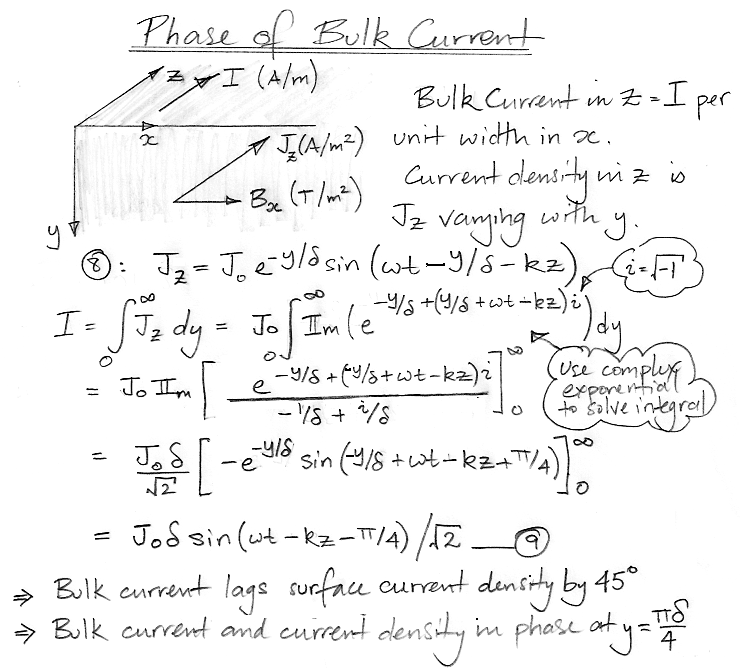 Phase of Bulk Current
z I (A/m)
x
J_z (A/m²)
B_x (T/m²)
y
Bulk Current in z = I per
unit width in x.
Current density in z is
J_z varying with y.
⑧: J_z = J₀ e^(-y/δ) sin (ωt - y/δ - kz)
i = √-1
I = ∫₀^∞ J_z dy = J₀ ∫₀^∞ Im (e^(-y/δ + (y/δ + ωt - kz)i)) dy
Use complex
exponential
to solve integral
= J₀ Im [ e^(-y/δ + (-y/δ + ωt - kz)i) / (-1/δ + i/δ) ]₀^∞
= J₀δ/√2 [ -e^(-y/δ) sin (-y/δ + ωt - kz + π/4) ]₀^∞
= J₀δ sin (ωt - kz - π/4) /√2 ⑨
⇒ Bulk current lags surface current density by 45°
⇒ Bulk current and current density in phase at y = πδ/4